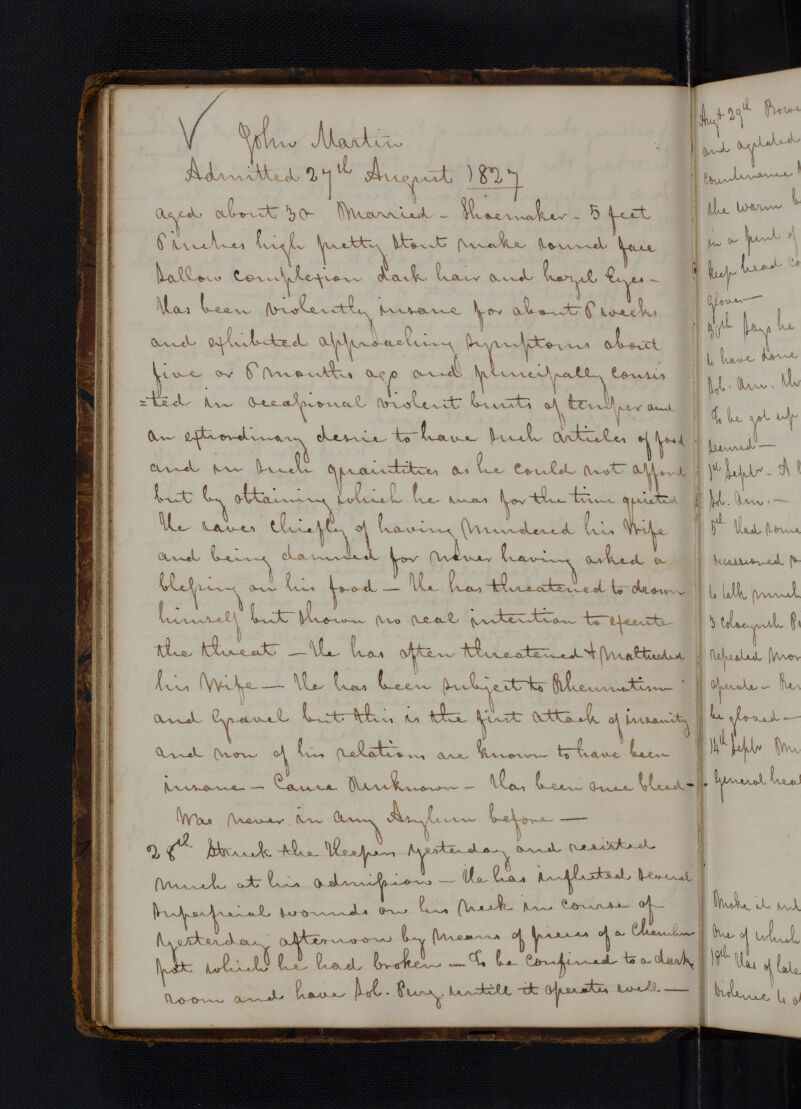 John Martin
Admitted 27th August 1827
aged about 30 Married - Shoemaker - 5 feet
6 inches high pretty stout make round face
Sallow complexion dark hair and hazel Eyes -
Has been violently insane for about 6 weeks
and exhibited approaching symptoms about
five or 6 months ago and principally consis
=ted in occasional violent bursts of temper and
an extraordinary desire to have such articles of food
and in such quaintities as he could not afford
but by obtaining which he was for the time quieted
He raves chiefly of having Murdered his Wife
and being damned for never having asked a
blessing on his food - He has threatened to drown
himself but shown no real intention to execute
the threat - He has often threatened & Maltreated
his Wife - He has been subject to Rheumatism
and Gravel but this is the first attack of insanity
and non of his relations are known to have been
insane - Cause Unknown - Has been once bleed -
Was never in any Asylum before -
28th Struck the Keepers yesterday and resisted
much at his admission - He has inflicted several
superficial wounds on his Neck in course of
Yesterday afternoon by means of pieces of a Chamber
pot which he had broken - To be confined to a dark
room and have Sol. Purg. untill it operates well -
Augt 29th
and agitated
Countenance
the warm
in a pint of
keep head
Glover -
30th Says he
to have done
Sol. Am.
To be got up
seemed -
1st Septr - A
Sol. Am. -
5th Had some
occasioned
to talk much
3 Colocynth
repeated
operate -
be gloved -
14th Septr
General heal
Make it
One of which
18th Has of late
violence to